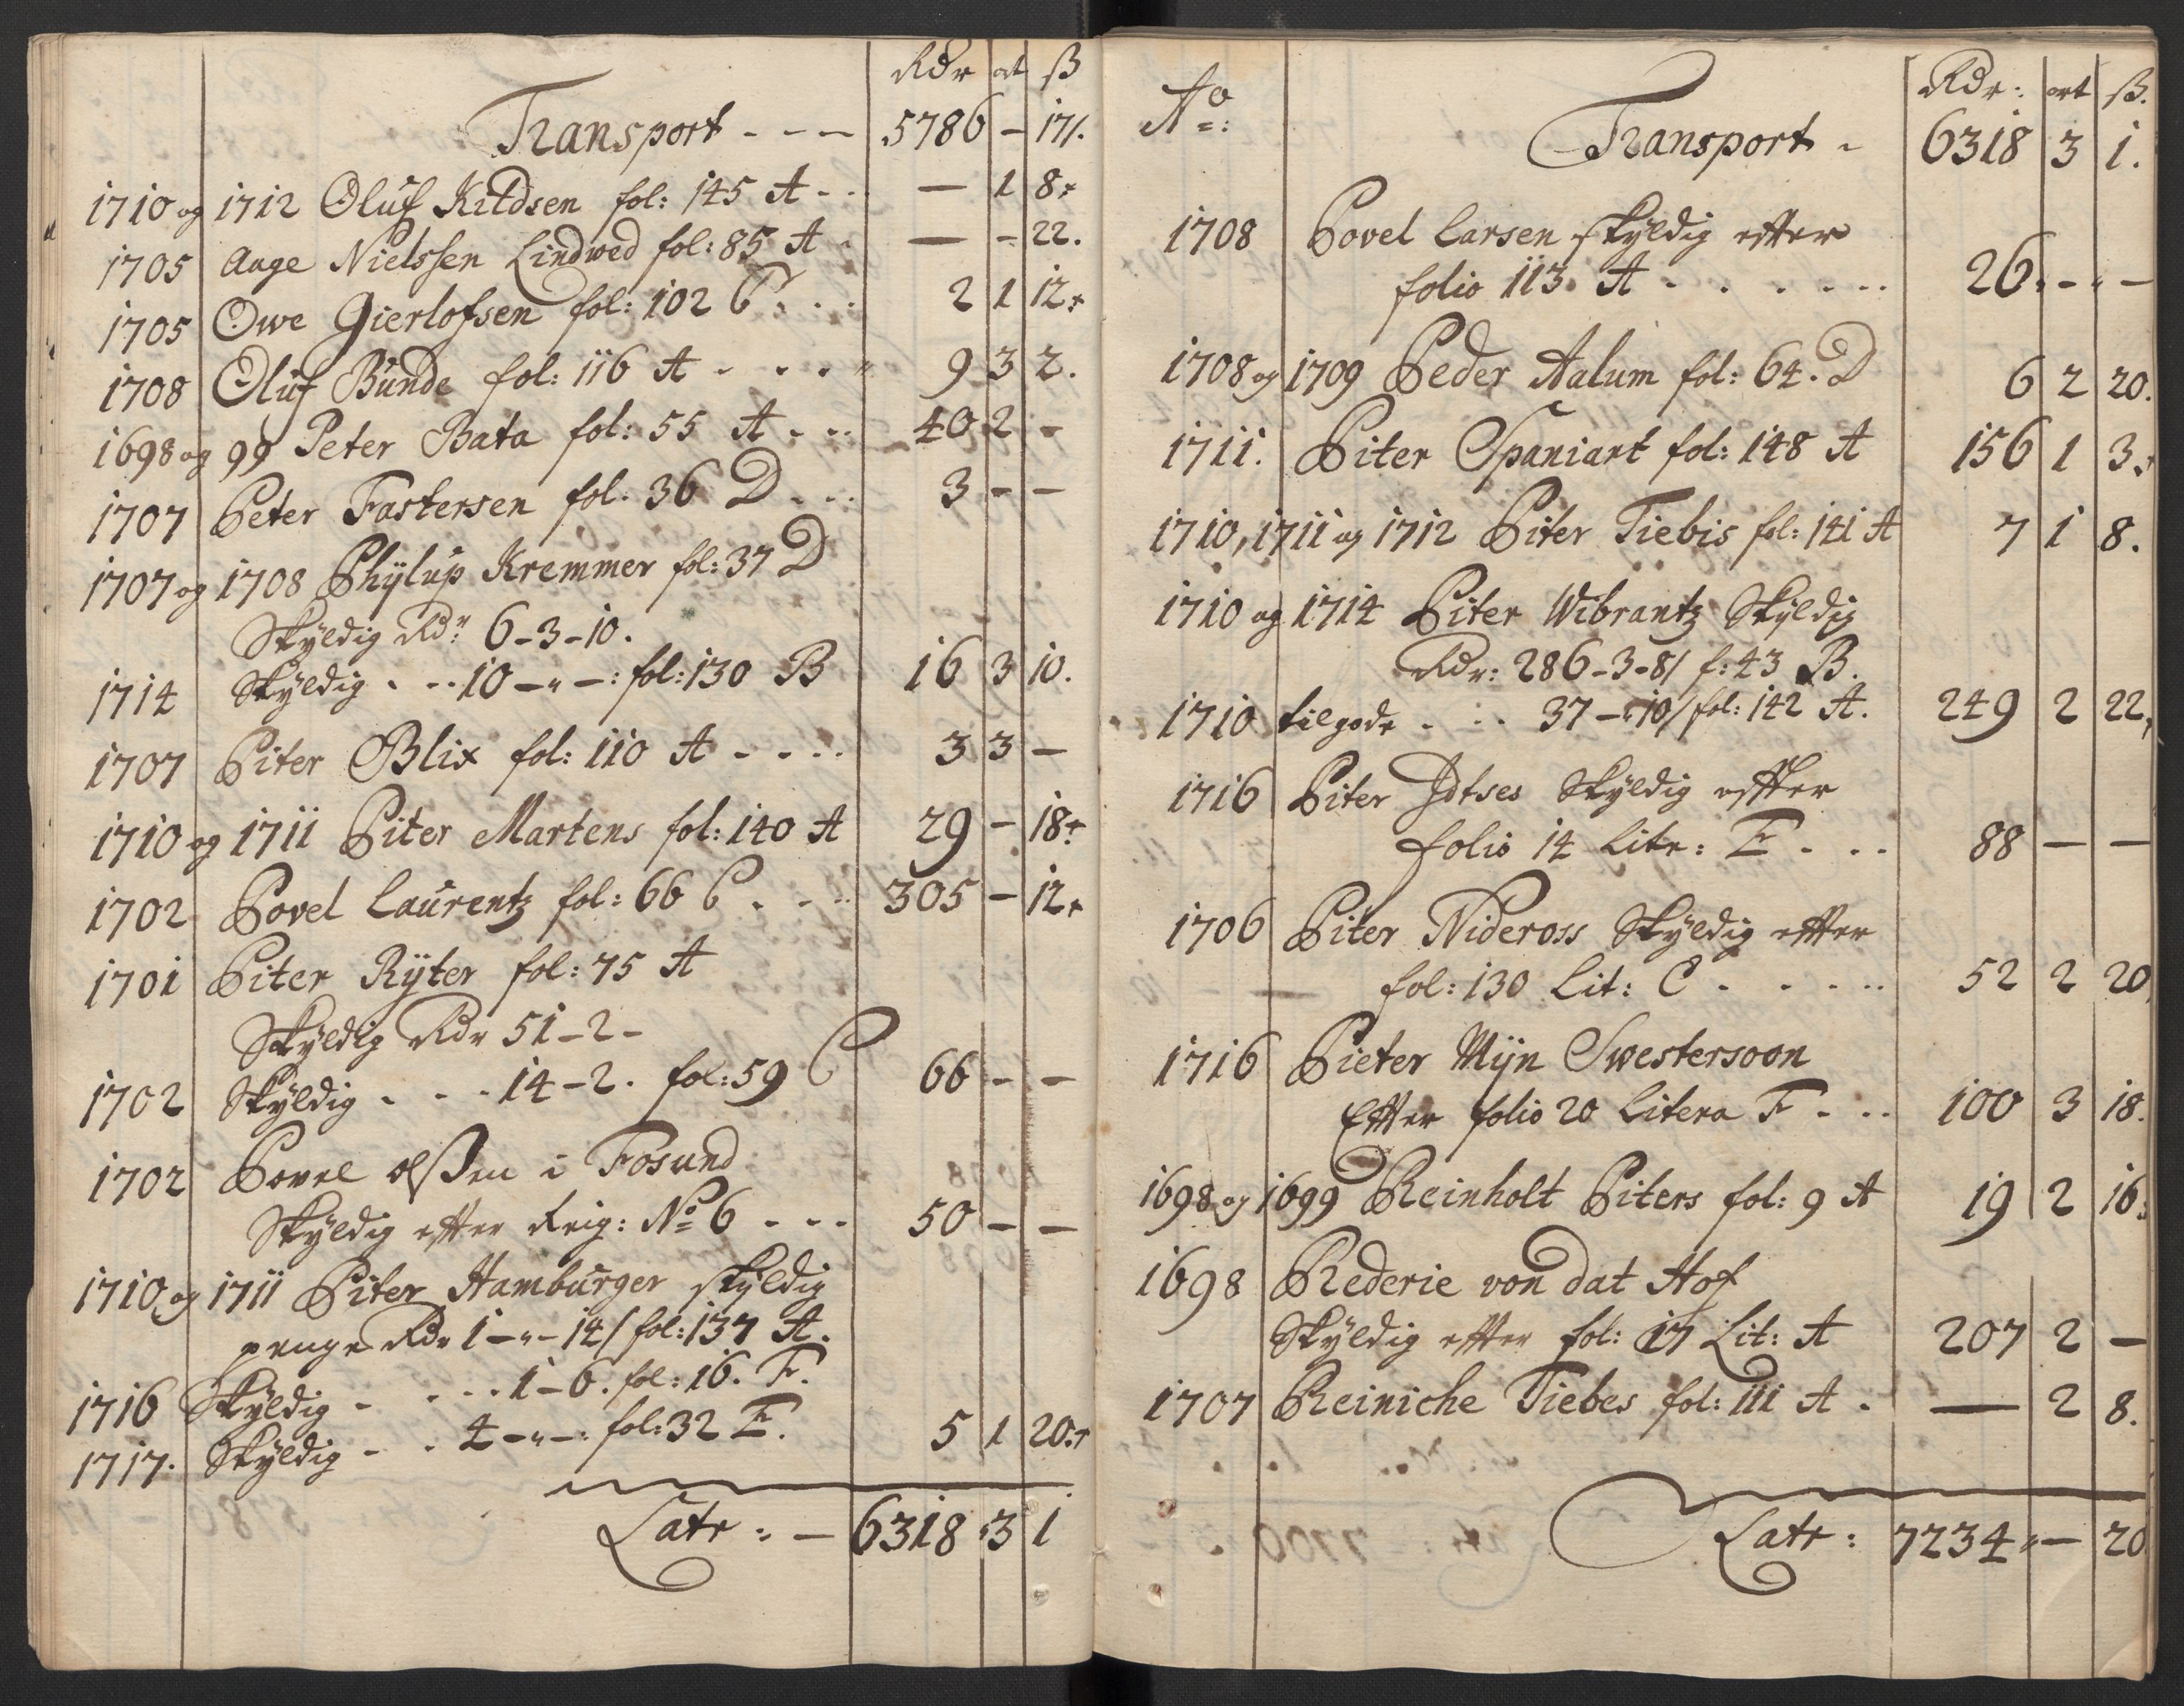 Rdr ort ß
Transport - - - 5786 - 17.
1710 og 1712 Oluf Kildsen fol: 145 A - - — 1 8.
1705 Aage Nielssen Lindwed fol: 85 A - — - 22.
1705 Owe Gierlofsen fol: 102 C . . . 2 1 12.
1708 Oluf Bunde fol: 116 A - . . . 9 3 2.
1698 og 99 Peter Bata fol: 55 A . . . 40 2 -
1707 Peter Fastersen fol. 36 D . . . 3 - -
1707 og 1708 Phÿlup Kremmer fol: 37 D
Skÿldig Rdr 6-3-10.
1714 Skÿldig . . . 10 - " - : fol: 130 B 16 3 10.
1707 Piter Blix fol: 110 A - . . . 3 3 -
1710 og 1711 Piter Martens fol: 140 A 29 - 18.
1702 Povel Laurentz fol: 66 C . - . . 305 - 12.
1701 Piter Rÿter fol: 75 A
Skÿldig Rdr 51-2-
1702 Skÿldig . - . 14-2. fol: 59 C 66 - -
1702 Povel olßen i Fosund
Skÿldig efter Reig: No 6 - - - 50 - -
1710 og 1711 Piter Hamburger skÿldig
penge Rdr 1 - " - 14/ fol: 137 A.
1716 Skÿldig - . . . 1-6. fol: 16. F.
1717. Skÿldig - . 4 - " - : fol: 32 E. 5 1 20.
Latr: - 6318 3 1
Ao: Rdr: ort ß.
Transport - 6318 3 1.
1708 Povel Larsen skÿldig efter
folio 113. A - . . . . . 26. - - -
1708 og 1709 Peder Aalum fol: 64. D 6 2 20.
1711. Piter Spaniart fol: 148 A 156 1 3.
1710, 1711 og 1712 Piter Tiebis fol: 141 A 7 1 8.
1710 og 1714 Piter Wibrantz Skÿldig
Rdr: 286-3-8/ f: 43 B.
1710 tilgode - . . 37 - " 10/ fol: 142 A. 249 2 22.
1716 Piter Idtses Skÿldig effter
folio 14 Litr: E . . . 88 - -
1706 Piter Nideross Skÿldig effter
fol: 130 Lit: C . . . . . 52 2 20
1716 Pieter Mÿn Swestersoon
Effter folio 20 Litera F - . . 100 3 18.
1698 og 1699 Reinholt Piters fol: 9 A 19 2 16.
1698 Rederie von dat Hof
Skÿldig effter fol: 17 Lit: A 207 2 -
1707 Reiniche Tiebes fol: 111 A . — 2 8.
Latr: 7234 " - 20